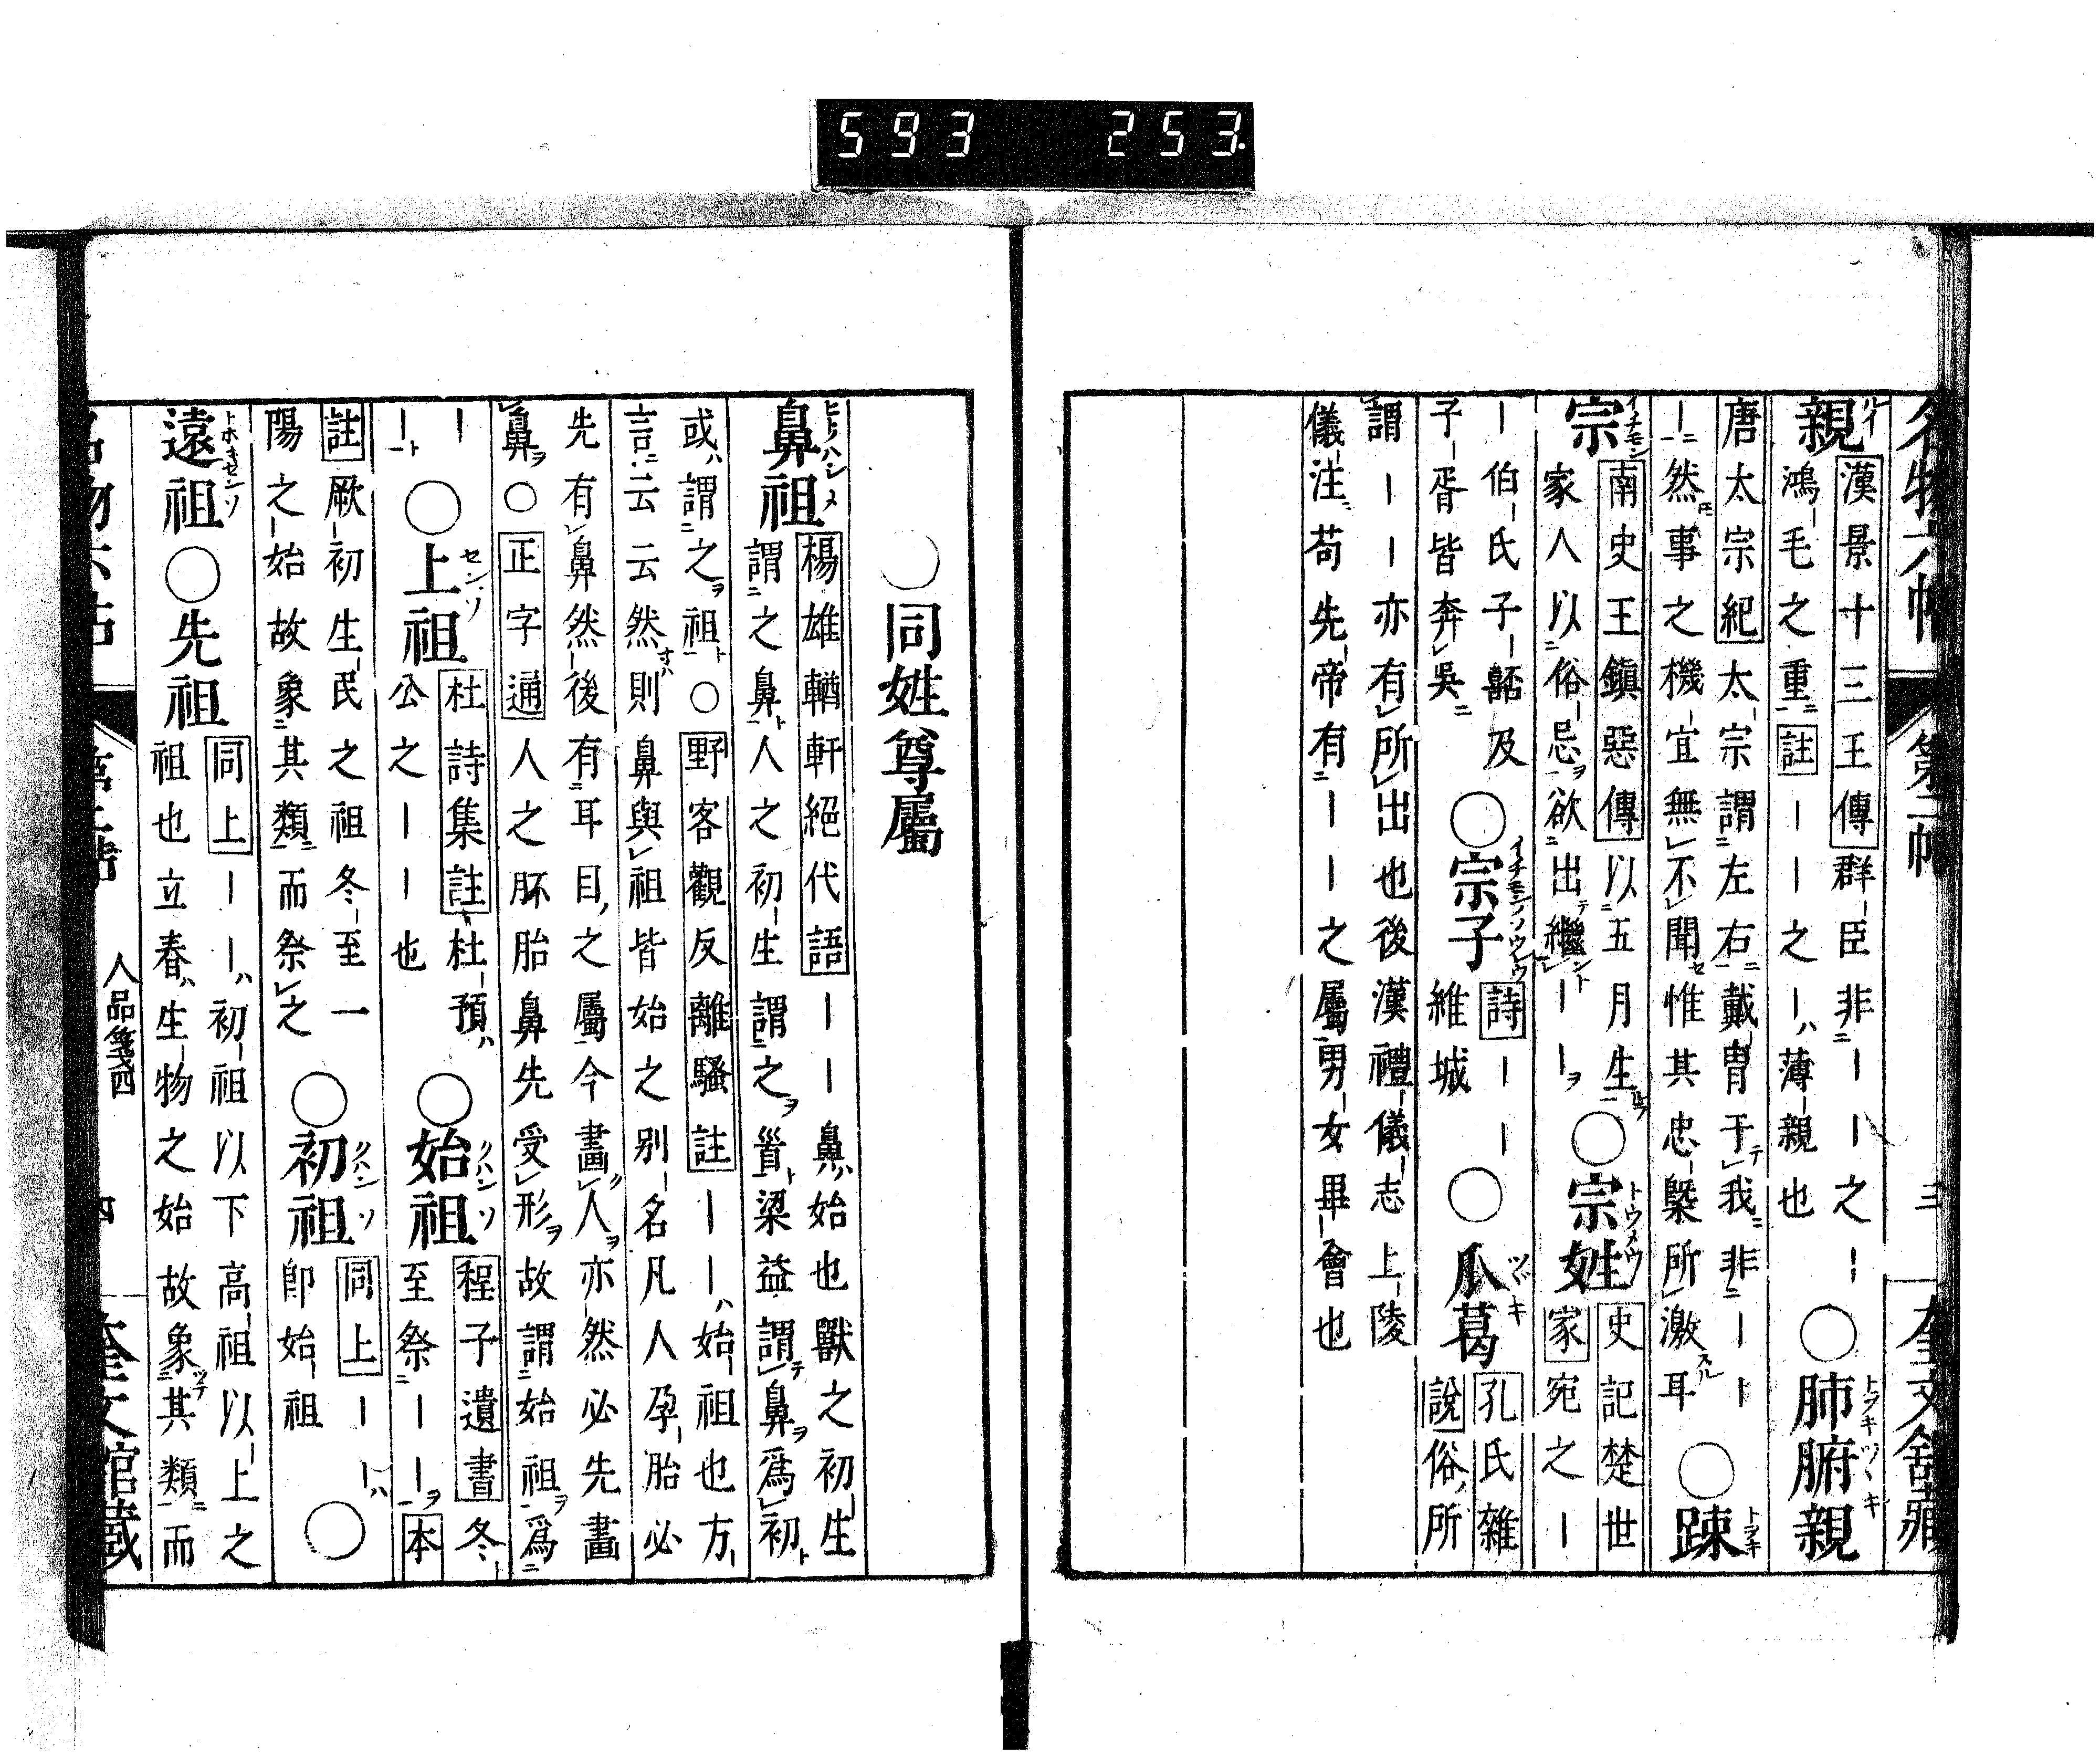 593 253
名物六帖 第二帖 三 奎文舘藏
親 漢景十三王傳 群臣非｜｜之｜
鴻毛之重 註 ｜｜之｜薄親也
○肺腑親
唐太宗紀 太宗謂左右戴冑于我非｜｜
｜然事之機宜無不聞惟其忠槩所激耳
○踈
宗 南史王鎮惡傳 以五月生
家人以俗忌欲出繼｜｜
○宗姓 史記楚世
家 宛之｜
｜伯氏子嚭及
子胥皆奔吳
○宗子 詩 ｜｜
維城
○瓜葛 孔氏雜
說 俗所
謂｜｜亦有所出也後漢禮儀志上陵
儀注苟先帝有｜｜之屬男女畢會也
○同姓尊屬
鼻祖 楊雄輶軒絕代語 ｜｜鼻始也獸之初生
謂之鼻人之初生謂之首梁益謂鼻爲初
或謂之祖○野客觀反離騷註 ｜｜始祖也方
言云云然則鼻與祖皆始之別名凡人孕胎必
先有鼻然後有耳目之屬今畫人亦然必先畫
鼻○正字通 人之胚胎鼻先受形故謂始祖爲
｜
｜
○上祖 杜詩集註 杜預
公之｜｜也
○始祖 程子遺書 冬
至祭｜｜ 本
註 厥初生民之祖冬至一
陽之始故象其類而祭之
○初祖 同上 ｜｜
卽始祖
○
遠祖○先祖 同上 ｜｜初祖以下高祖以上之
祖也立春生物之始故象其類而
人品箋四 四